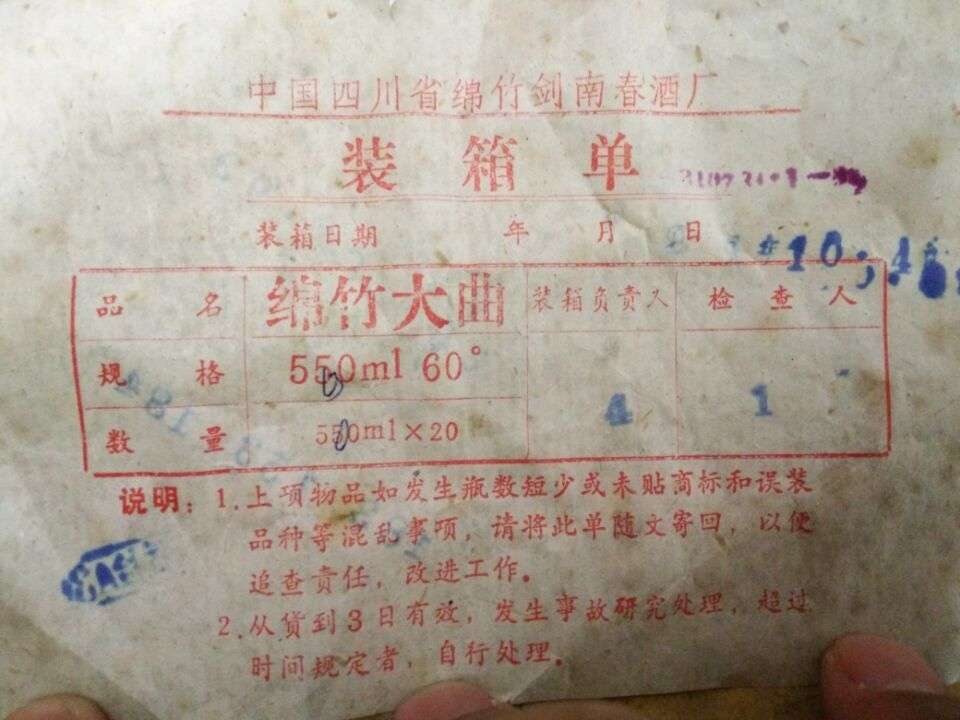 中国四川省绵竹剑南春酒厂
装箱单
装箱日期 年 月 日
10;4
品名 绵竹大曲 装箱负责人 检查人
规格 550ml 60°
4 1
数量 550ml×20
说明：1.上项物品如发生瓶数短少或未贴商标和误装
品种等混乱事项，请将此单随文寄回，以便
追查责任，改进工作。
2.从货到3日有效，发生事故研究处理，超过
时间规定者，自行处理。